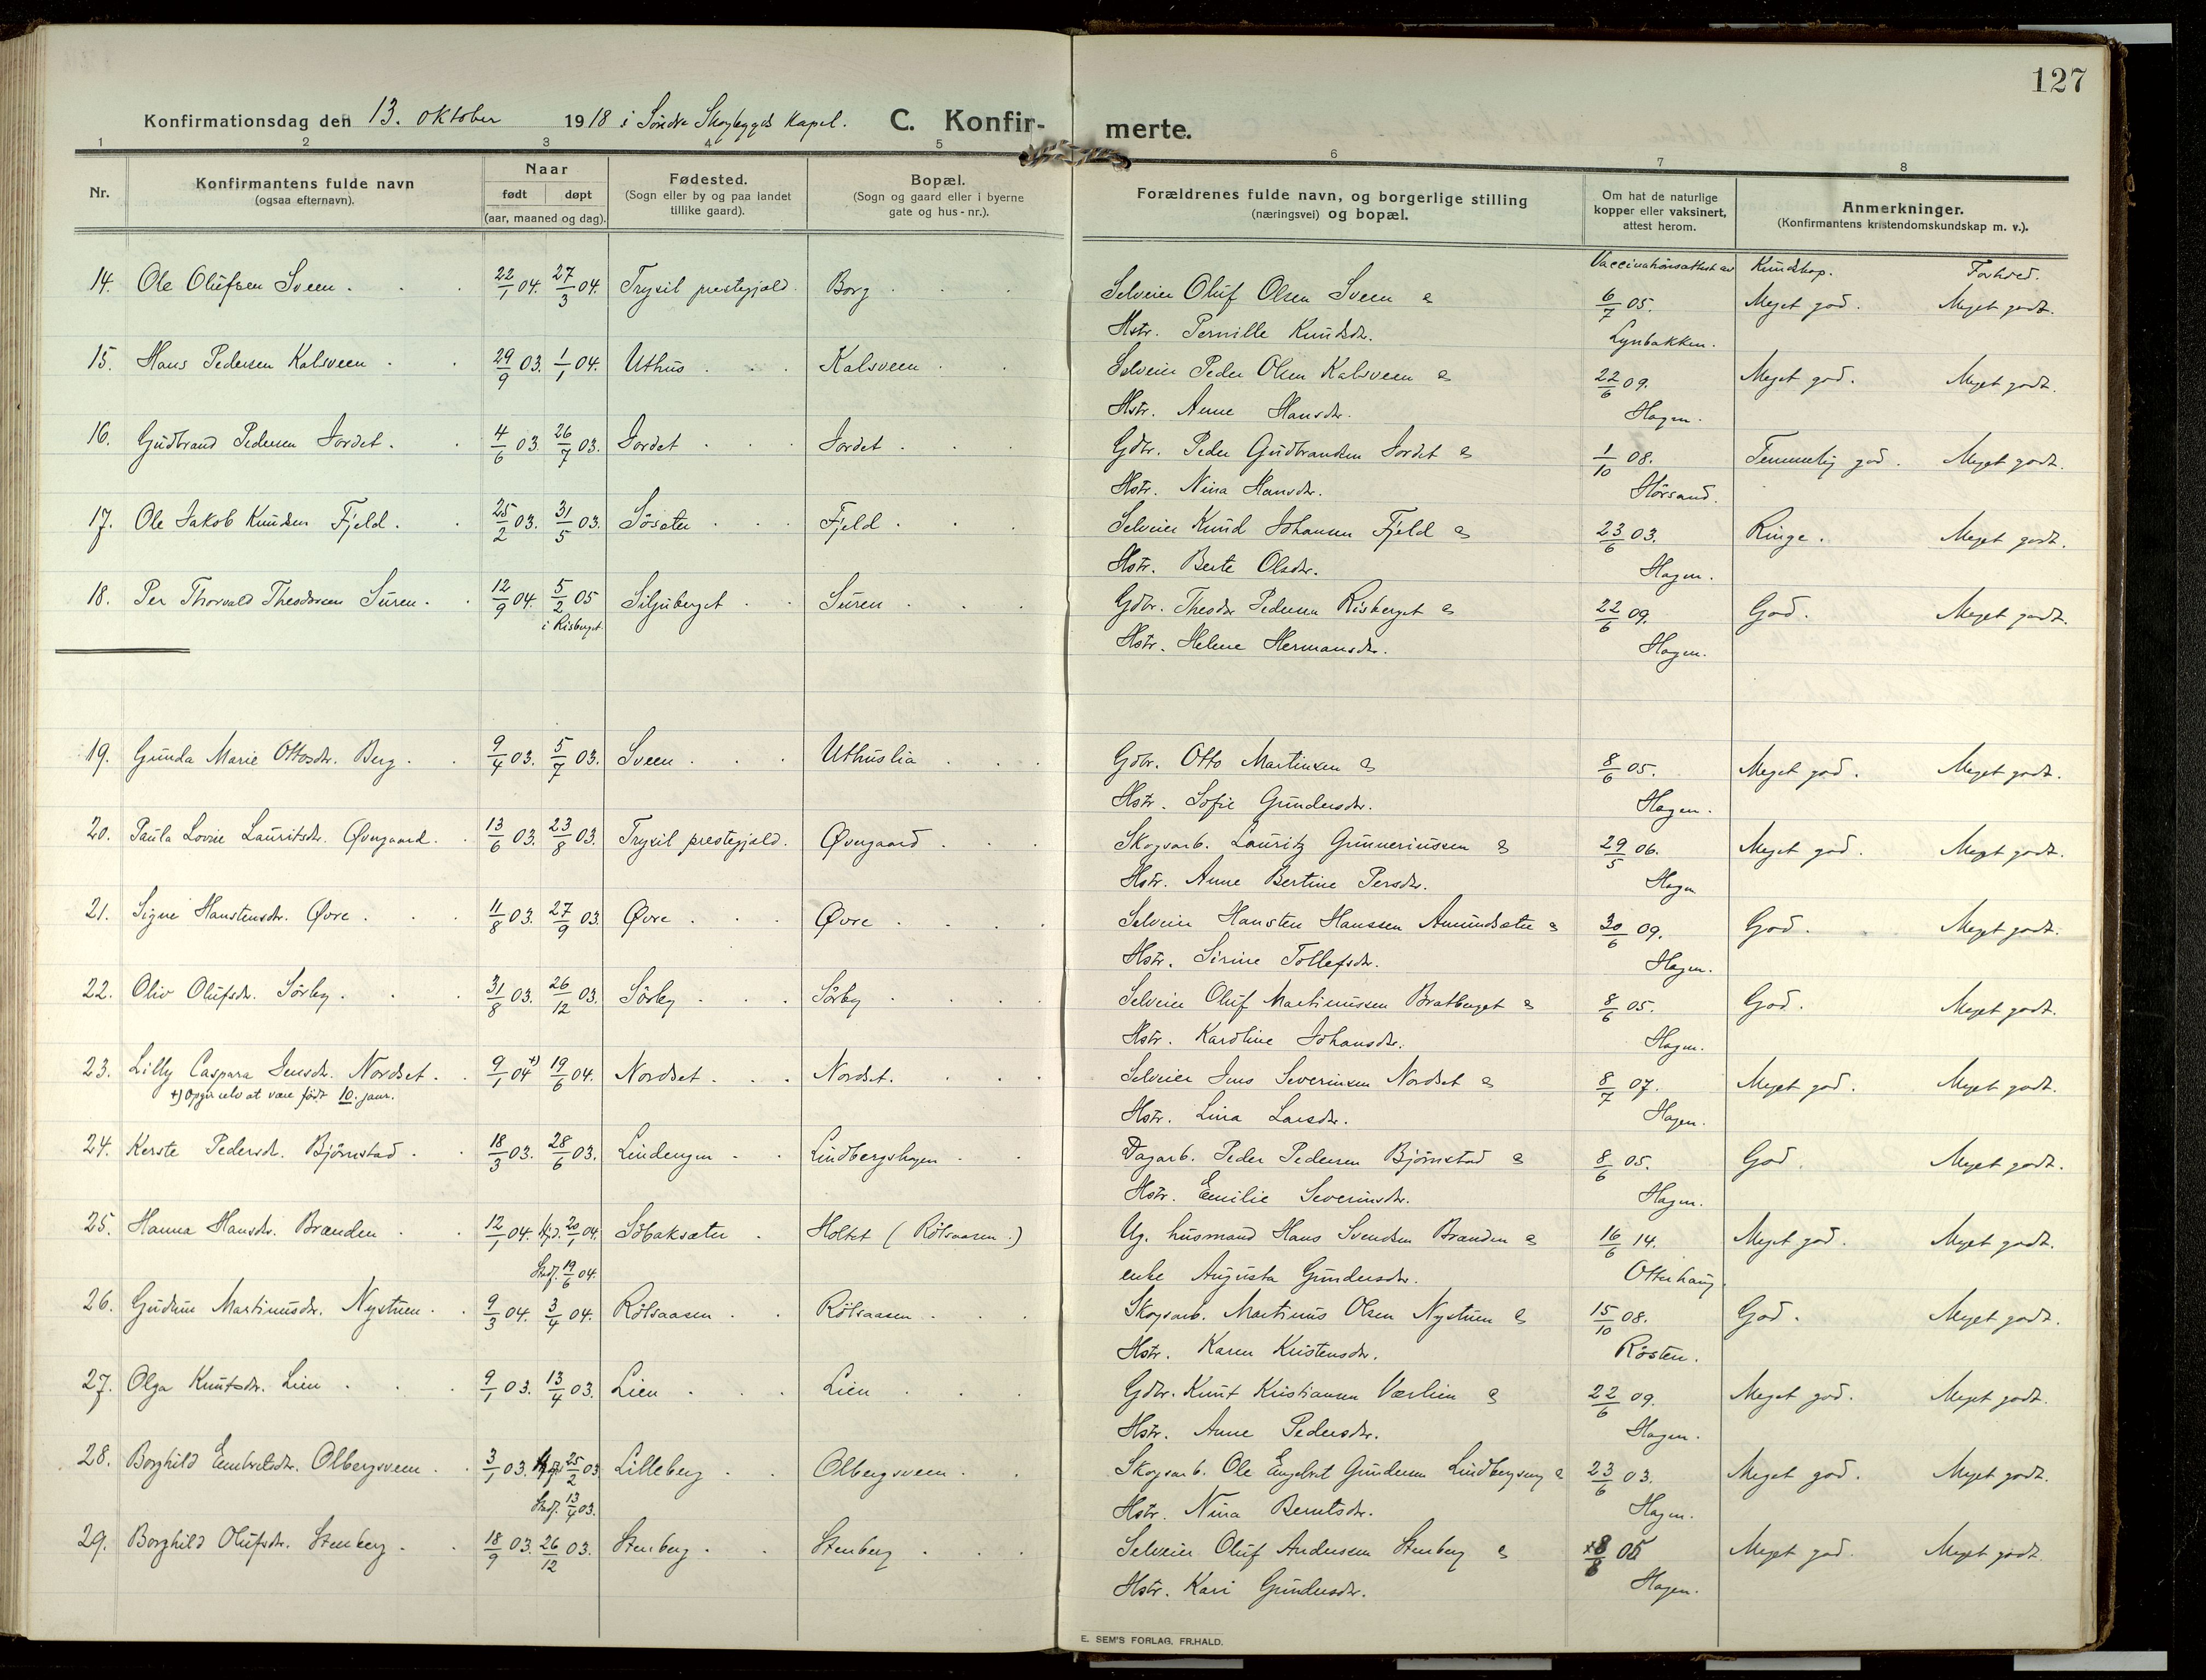 127
Konfirmationsdag den 13. oktober 1918 i Søndre Skogbygds Kapel. C. Konfir- merte.
1 2 3 4 5 6 7 8
Nr. Konfirmantens fulde navn (ogsaa efternavn). Naar født døpt (aar, maaned og dag). Fødested. (Sogn eller by og paa landet tillike gaard). Bopæl. (Sogn og gaard eller i byerne gate og hus-nr.). Forældrenes fulde navn, og borgerlige stilling (næringsvei) og bopæl. Om hat de naturlige kopper eller vaksinert, attest herom. Anmerkninger. (Konfirmantens kristendomskundskap m. v.).
Vaccinationsattest av Kundskap. Forhold.
14. Ole Olufsen Sveen. 22/1 04. 27/3 04. Trysil prestegjeld. Borg Selveier Oluf Olsen Sveen & 6/7 05. Meget god. Meget godt.
Hstr. Pernille Knudsdr. Lynbakken.
15. Hans Pedersen Kalsveen. 29/9 03. 1/1 04. Uthus Kalsveen Selveier Peder Olsen Kalsveen & 22/6 09. Meget god. Meget godt.
Hstr. Anne Hansdr. Hagen.
16. Gudbrand Pedersen Jordet. 4/6 03. 26/7 03. Jordet Jordet Gdbr. Peder Gudbrandsen Jordet & 1/10 08. Temmelig god. Meget godt.
Hstr. Nina Hansdr. Hörsand.
17. Ole Jakob Knudsen Fjeld. 25/2 03. 31/5 03. Sösæter Fjeld Selveier Knud Johansen Fjeld & 23/6 03. Ringe. Meget godt.
Hstr. Berte Olsdr. Hagen.
18. Per Thorvald Theodorsen Suren. 12/9 04. 5/2 05 Siljuberget Suren Gdbr. Theodor Pedersen Risberget & 22/6 09. God. Meget godt.
i Risberget Hstr. Helene Hermansdr. Hagen.
19. Gunda Marie Ottosdr. Berg. 9/4 03. 5/7 03. Sveen Uthuslia Gdbr. Otto Martinsen & 8/6 05. Meget god. Meget godt.
Hstr. Sofie Gundersdr. Hagen.
20. Paula Lovise Lauritsdr. Øvergaard. 13/6 03. 23/8 03. Trysil prestegjeld. Øvergaard Skogsarb. Lauritz Gunneriussen & 29/5 06. Meget god. Meget godt.
Hstr. Anne Bertine Persdr. Hagen
21. Signe Hanstensdr. Øvre. 11/8 03. 27/9 03. Øvre Øvre Selveier Hansten Hanssen Amundsæter & 30/6 09. God. Meget godt.
Hstr. Sirine Tollefsdr. Hagen.
22. Oliv Olufsdr. Sörby. 31/8 03. 26/12 03. Sörby Sörby Selveier Oluf Martinussen Bratberget & 8/6 05. God. Meget godt.
Hstr. Karoline Johansdr. Hagen.
23. Lilly Caspara Jensdr. Nordset. 9/1 04 +) 19/6 04. Nordset Nordset. Selveier Jens Severinsen Nordset & 8/7 07. Meget god. Meget godt.
+) Opgir selv at være født 10. jaur. Hstr. Lina Larsdr. Hagen.
24. Kerste Pedersdr. Björnstad. 18/3 03. 28/6 03. Lindengen Lindbergshagen Dagarb. Peder Pedersen Björnstad & 8/6 05. God. Meget godt.
Hstr. Emilie Severinsdr. Hagen.
25. Hanna Hansdr. Brænden 12/1 04. Hjd. 20/1 04. Söbaksæter Holtet (Rötsaasen.) Ug. husmand Hans Svendsen Brænden & 16/6 14. Meget god. Meget godt.
Stadf. 19/6 04. enke Augusta Gundersdr. Otterhaug.
26. Gudrun Martinusdr. Nystuen. 9/3 04. 3/4 04. Rötsaasen Rötsaasen Skogsarb. Martinus Olsen Nystuen & 15/10 08. God. Meget godt.
Hstr. Karen Kristensdr. Rösten.
27. Olga Knutsdr. Lien 9/1 03. 13/4 03. Lien Lien Gdbr. Knut Kristiansen Værlien & 22/6 09. Meget god. Meget godt.
Hstr. Anne Pedersdr. Hagen.
28. Borghild Embretsdr. Olbergsveen. 3/1 03. 25/2 03 Lilleberg Olbergsveen Skogsarb. Ole Engebret Gundersen Lindbergseng & 23/6 03. Meget god. Meget godt.
Stadf. 13/4 03. Hstr. Nina Berntsdr. Hagen.
29. Borghild Olufsdr. Stenberg. 18/9 03. 26/12 03. Stenberg Stenberg Selveier Oluf Andersen Stenberg & 8/6 05 Meget god. Meget godt.
Hstr. Kari Gundersdr. Hagen.
E. SEM'S FORLAG, FR.HALD.